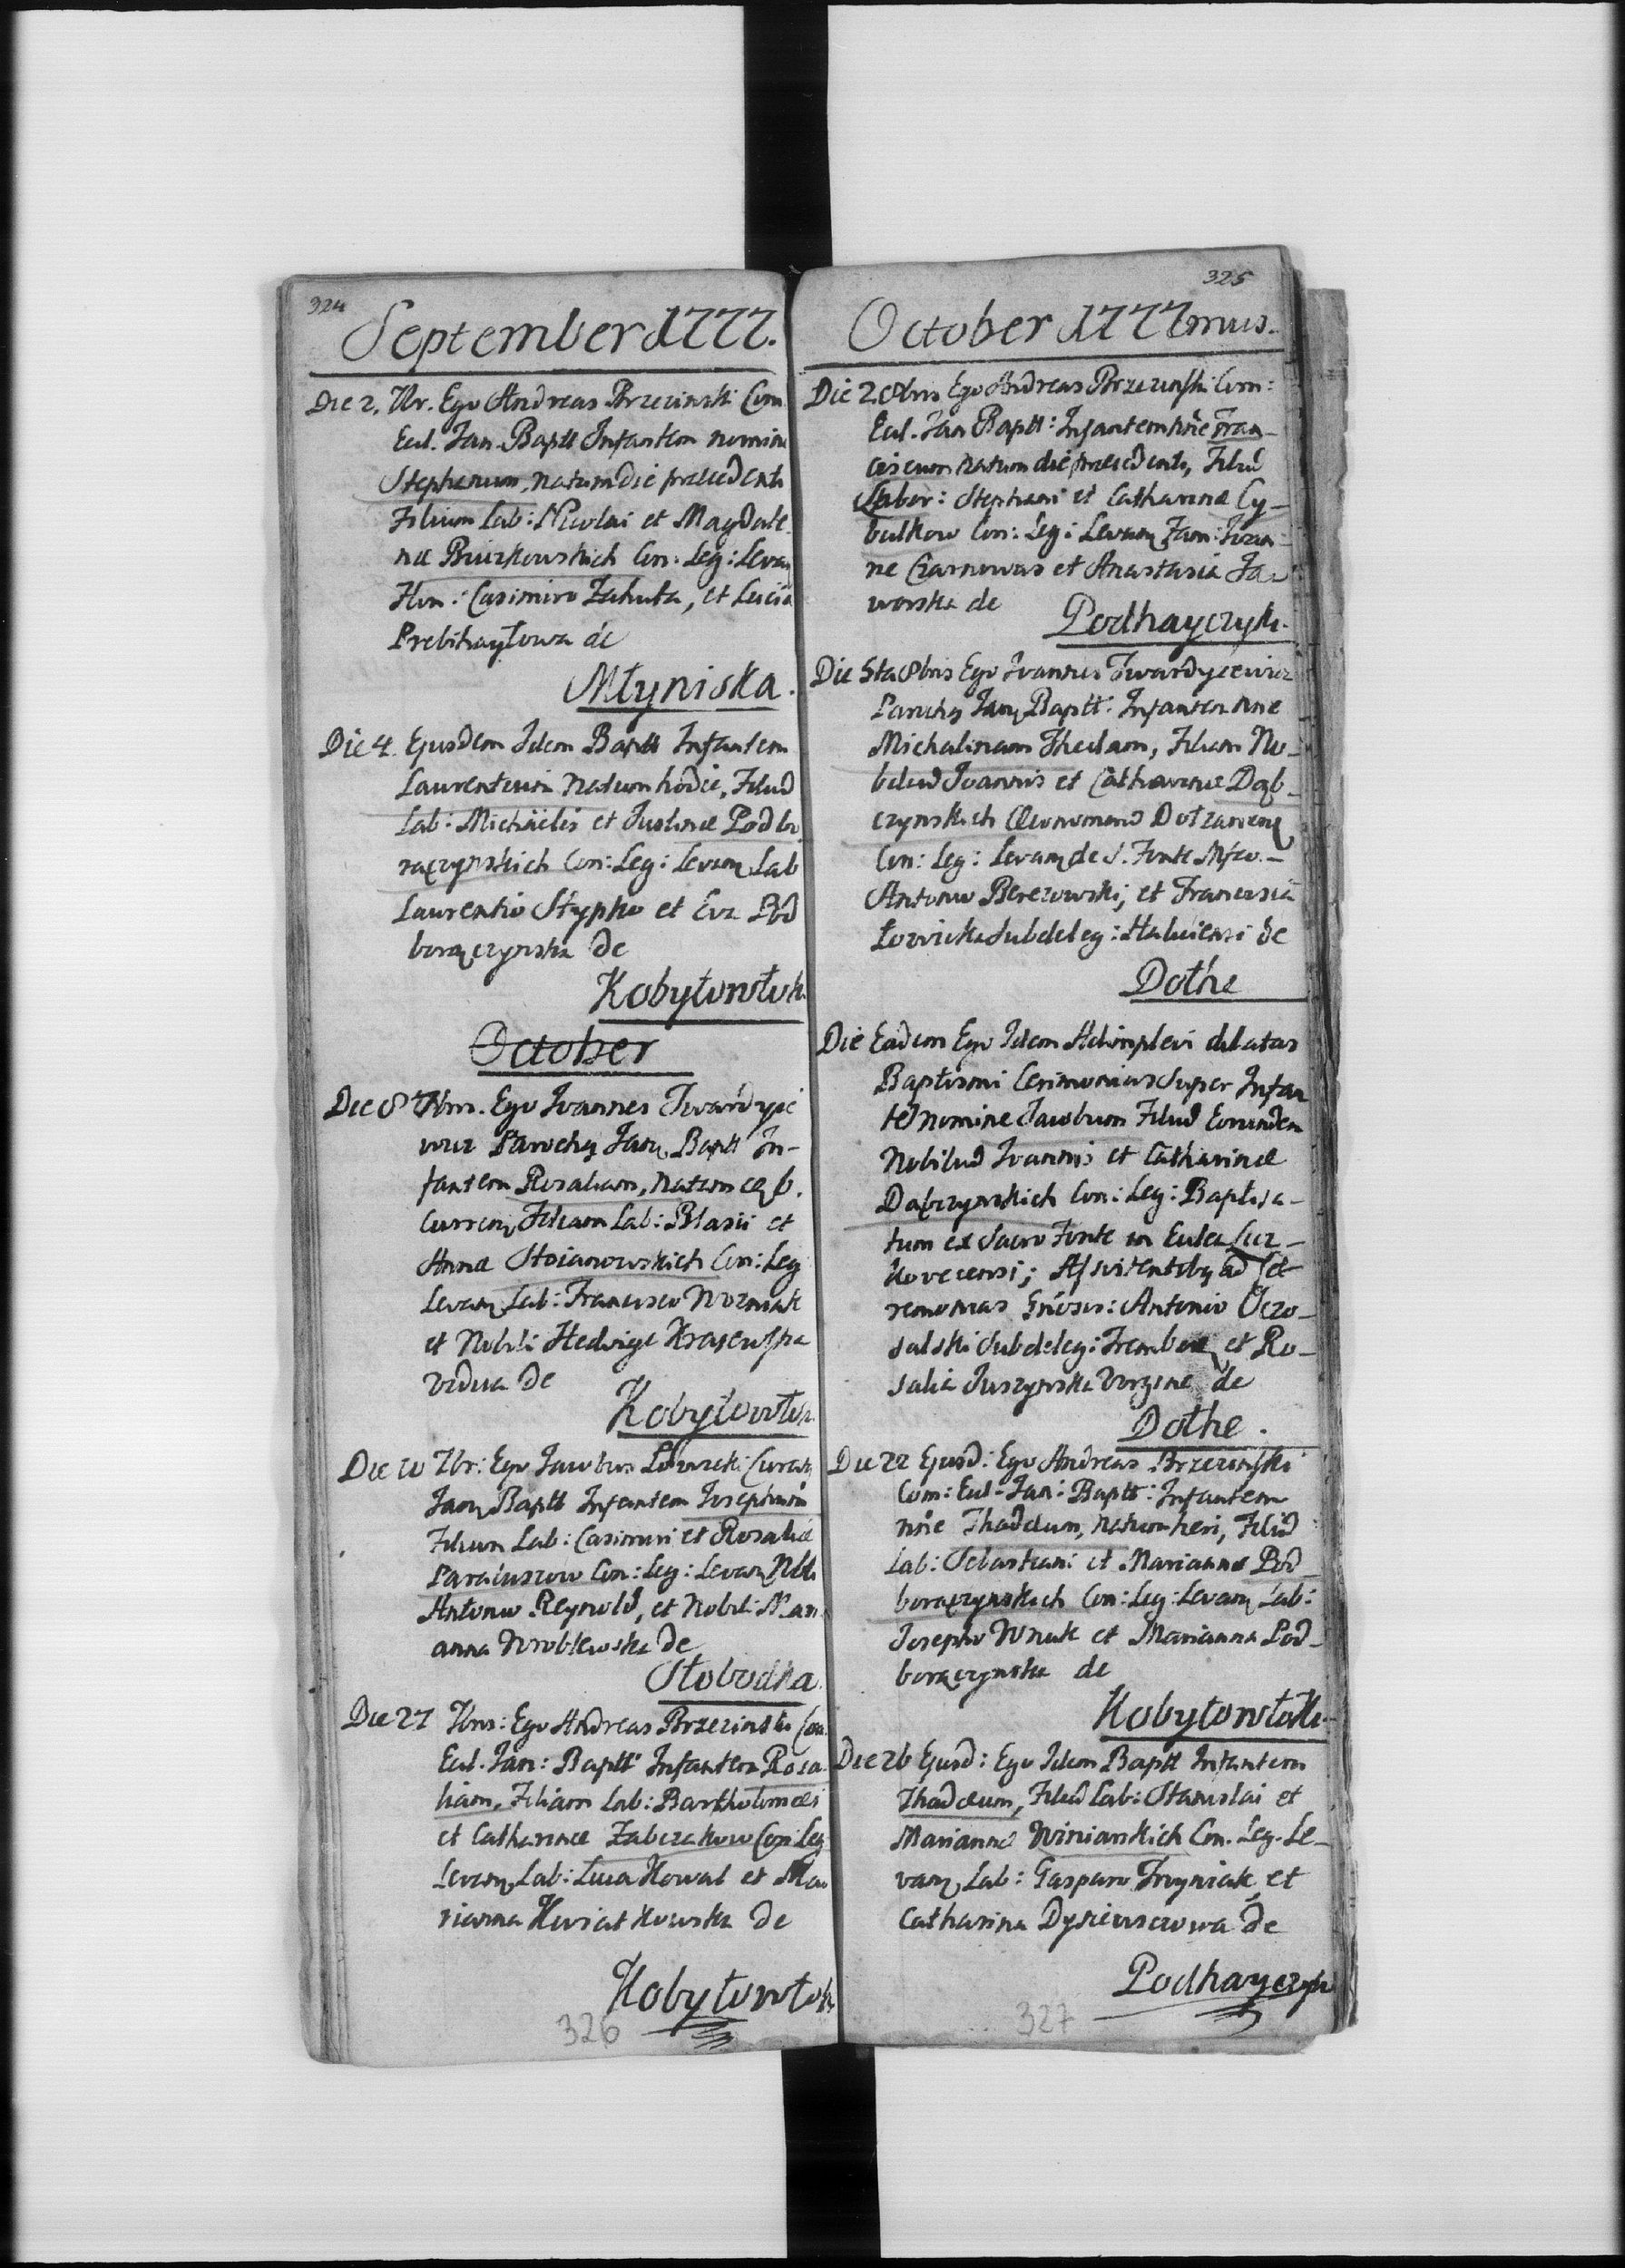 324
September 1777.
Die 2. 7br. Ego Andreas Brzezinski Com
Eccl. Jan. Baptt Infantem nomine
Stephanum, natum die praecedenti
Filium Lab: Nicolai et Magdale
nae Con: Leg: Levan
Hon: Casimiro Zahuta, et Lucia
de
Młyniska.
Die 4. Ejusdem Idem Baptt Infantem
Laurentium natum hodie, Filiud
Lab: Michäelis et Justinae Podbo
raczynskich Con: Leg: Levan Lab
Laurentio Stypko et Eva Pod
boraczynska de
Kobyłowłok
October
Die 8 7bris. Ego Ivannes Twardyie
wicz Parochus Jan, Baptt In-
fantem Rosaliam, natam
Curren, Filiam Lab: Blasii et
Annae Stoianowskich Con: Leg
Levan Lab: Francisco Wozniak
et Nobili Hedvige
vidua de
Kobyłowłok
Die 10 7br: Ego Jacobus Łowicki Curat
Jan, Baptt Infantem Josephum
Filium Lab: Casimiri et Rosaliae
Con: Leg: Levan Nbli
Antonio Reynold, et Nobili Mari
anna Wroblewska de
Słobodka
Die 27 7bris: Ego Andreas Brzezinski Com
Eccl. Jan: Baptt Infantem Rosa
liam, Filiam Lab: Bartholomaei
et Catharinae Zabczakow Con: Leg
Levan Lab: Luca Kowal et Ma
rianna Kwiatkowska de
Kobyłowłok
326
325
October 1777mus.
Die 2. 8bris Ego Andreas Brzezinski Com:
Eccl. Jan Baptt: Infantem nne Fran-
ciscum natum die praecedenti, Filiud
Labor: Stephani et Catharinae Cy-
bulkow Con: Leg: Levan Fam: Ivan-
ne Czarnowas et Anastasia Ja
worska de
Podhayczyk.
Die 5ta 8bris Ego Ivannes Twardyiewicz
Parochus Jan, Baptt: Infantem nne
Michalinam Theclam, Filiam No-
biliud Joannis et Catharinae Dąb-
czynskich Oeconomend Dołzanens
Con: Leg: Levan de S. Fonte Mfco.-
Antonio Berezowski, et Francisia
Łowicka Subdeleg: Haliciensi de
Dołhe
Die Eadem Ego Idem Adimplevi dilatas
Baptismi Cerimonias Super Infan
ted nomine Jacobum Filiud Eorunden
Nobiliud Ivannis et Catharinae
Dąbczynskich Con: Leg: Baptisa-
tum ex Sacro Fonte in Eccl
Assistentiby ad
remonias Gnosis: Antonio
salski Subdeleg: Trembow, et Ro-
salia Juszynska Virgine de
Dołhe.
Die 22 Ejusd: Ego Andreas Brzezinski
Com: Eccl. Jan: Baptt: Infantem
nne Thadeum, natum heri, Filiud
Lab: Sebastiani et Mariannae Pod
boraczynskich Con: Leg: Levan Lab:
Josepho Wnuk et Marianna Pod-
boraczynska de
Kobyłowłok.
Die 26 Ejusd: Ego Idem Baptt Infantem
Thadeum, Filiud Lab: Stanislai et
Mariannae Winiarskich Con. Leg. Le-
van, Lab: Gasparo Froyniak, et
Catharina de
Podhayczyk
327